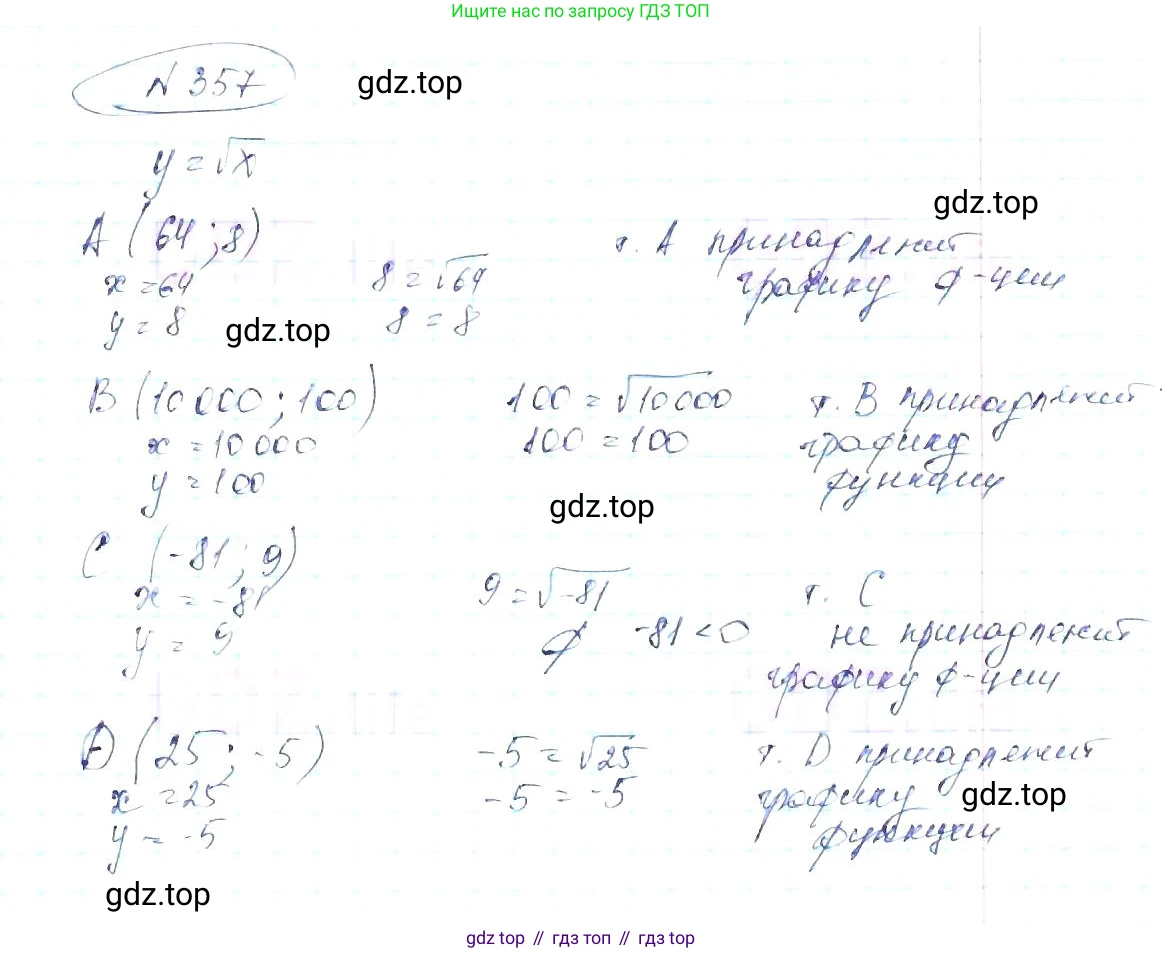 Ищите нас по запросу ГДЗ ТОП
N 357 gdz.top
y = √x
gdz.top
A (64; 8) т. A принадлежит
x = 64 8 = √64 графику ф-ции
y = 8 gdz.top 8 = 8
B (10 000; 100) 100 = √10 000 т. B принадлежит
x = 10 000 100 = 100 графику
y = 100 функции
gdz.top
C (-81; 9)
x = -81 9 = √-81 т. C
y = 9 ∅ -81 < 0 не принадлежит
графику ф-ции
D (25; -5) -5 = √25 т. D принадлежит
x = 25 -5 = -5 графику gdz.top
y = -5 функции
gdz.top
gdz top // гдз топ // gdz top